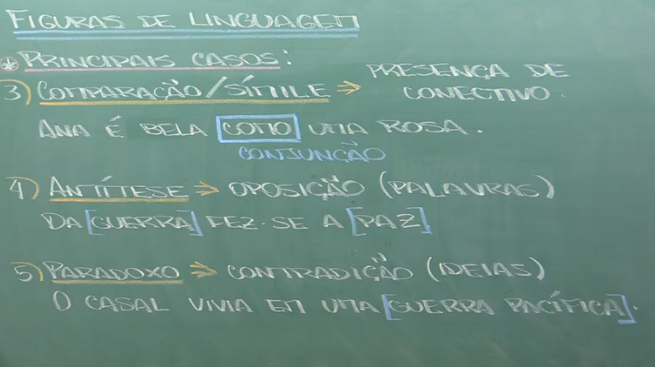 FIGURAS DE LINGUAGEM
* PRINCIPAIS CASOS:
3) COMPARAÇÃO/SÍMILE → PRESENÇA DE
CONECTIVO.
ANA É BELA [COMO] UMA ROSA.
CONJUNÇÃO
4) ANTÍTESE → OPOSIÇÃO (PALAVRAS)
DA [GUERRA] FEZ-SE A [PAZ]
5) PARADOXO → CONTRADIÇÃO (IDEIAS)
O CASAL VIVIA EM UMA [GUERRA PACÍFICA].